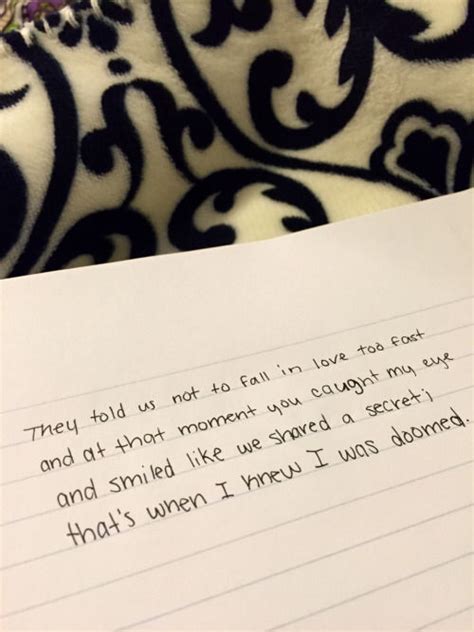 They told us not to fall in love too fast
and at that moment you caught my eye
and smiled like we shared a secret;
that's when I knew I was doomed.